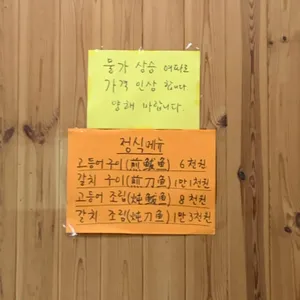 물가 상승 여파로
가격 인상 합니다
양해 바랍니다.
정식메뉴
고등어 구이(煎鯖魚) 6천원
갈치 구이(煎刀魚) 1만 1천원
고등어 조림(炖鯖魚) 8천원
갈치 조림(炖刀魚) 1만 3천원